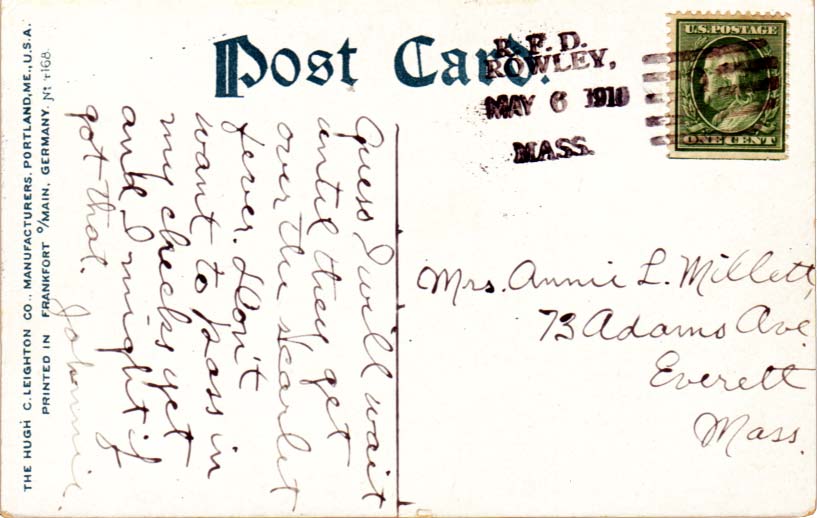 Post Card.
R. F. D.
ROWLEY,
MAY 6 1910
MASS.
U.S. POSTAGE
ONE CENT
Guess I will wait
until they get
over the scarlet
fever. Don't
want to pass in
my checks yet
and I might if
got that.
Johnnie.
Mrs. Annie L. Millett,
73 Adams Ave
Everett
Mass.
THE HUGH C. LEIGHTON CO., MANUFACTURERS, PORTLAND, ME., U.S.A.
PRINTED IN FRANKFORT O/MAIN, GERMANY.